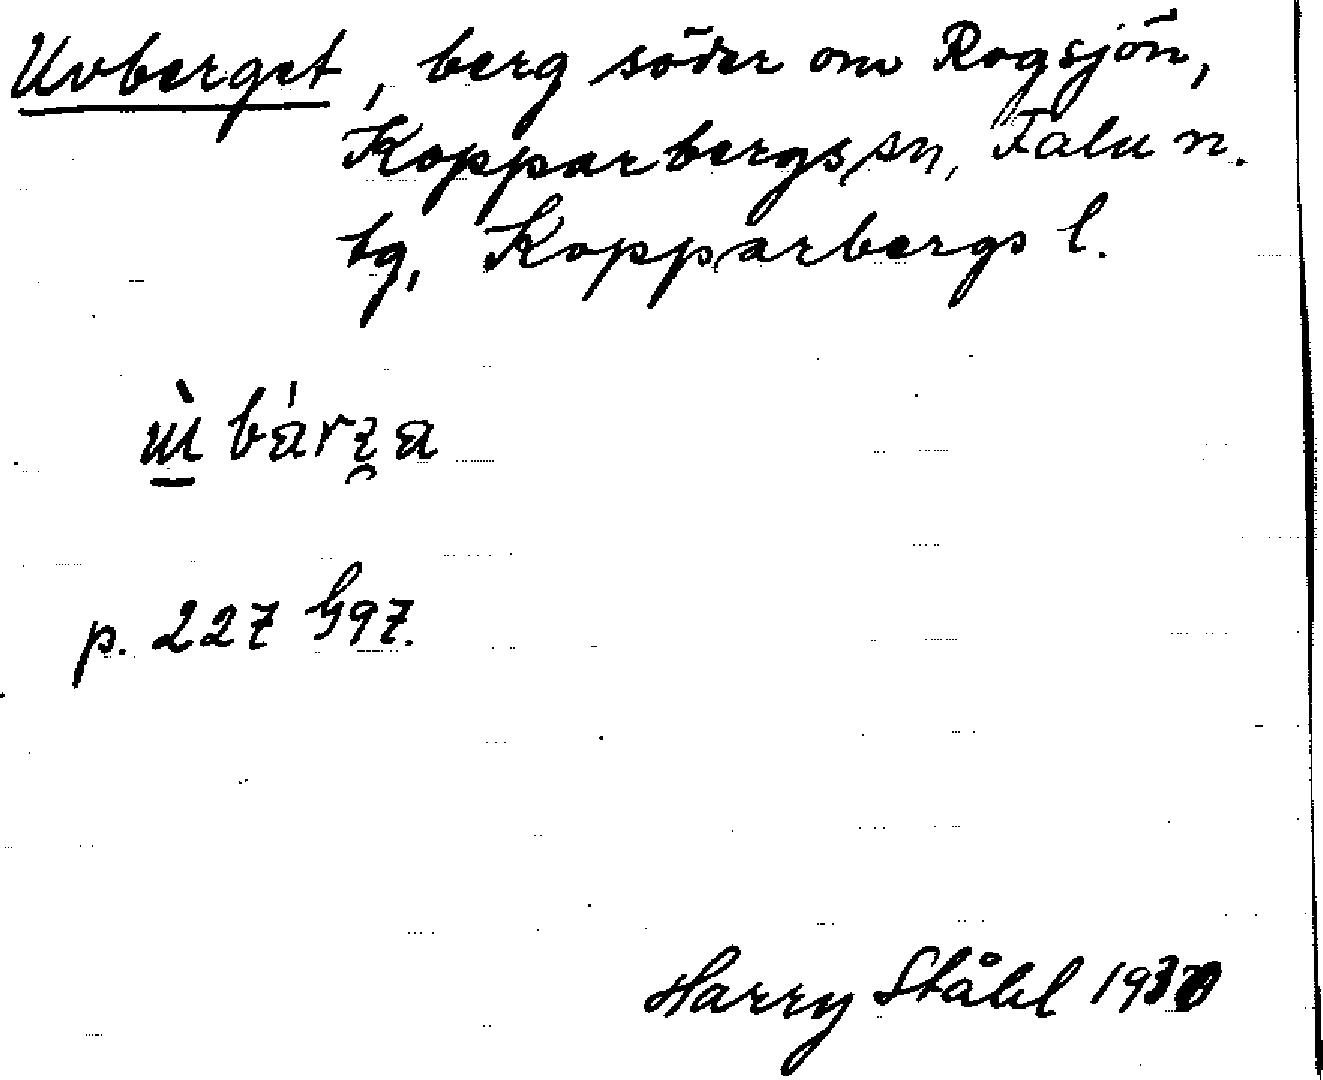 Uvberget, berg söder om Rogsjön,
Kopparbergs sn, Falu n.
tg, Kopparbergs l.
bárʒa
p. 227 G97.
Harry Ståhl 1930